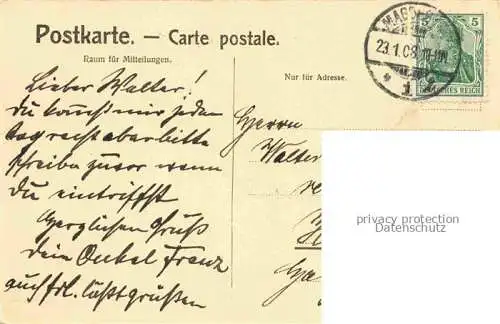 Postkarte. — Carte postale.
Raum für Mitteilungen.
Nur für Adresse.
MAGD
23.1.08.
1
5 5
DEUTSCHES REICH
Lieber Walter!
Du kannst mir jeden
Tag recht aber bitte
schreibe zuvor wenn
Du eintriffst
Herzlichen Gruß
dein Onkel Franz
auch frl. läßt grüßen
Herrn
Walter
privacy protection
Datenschutz